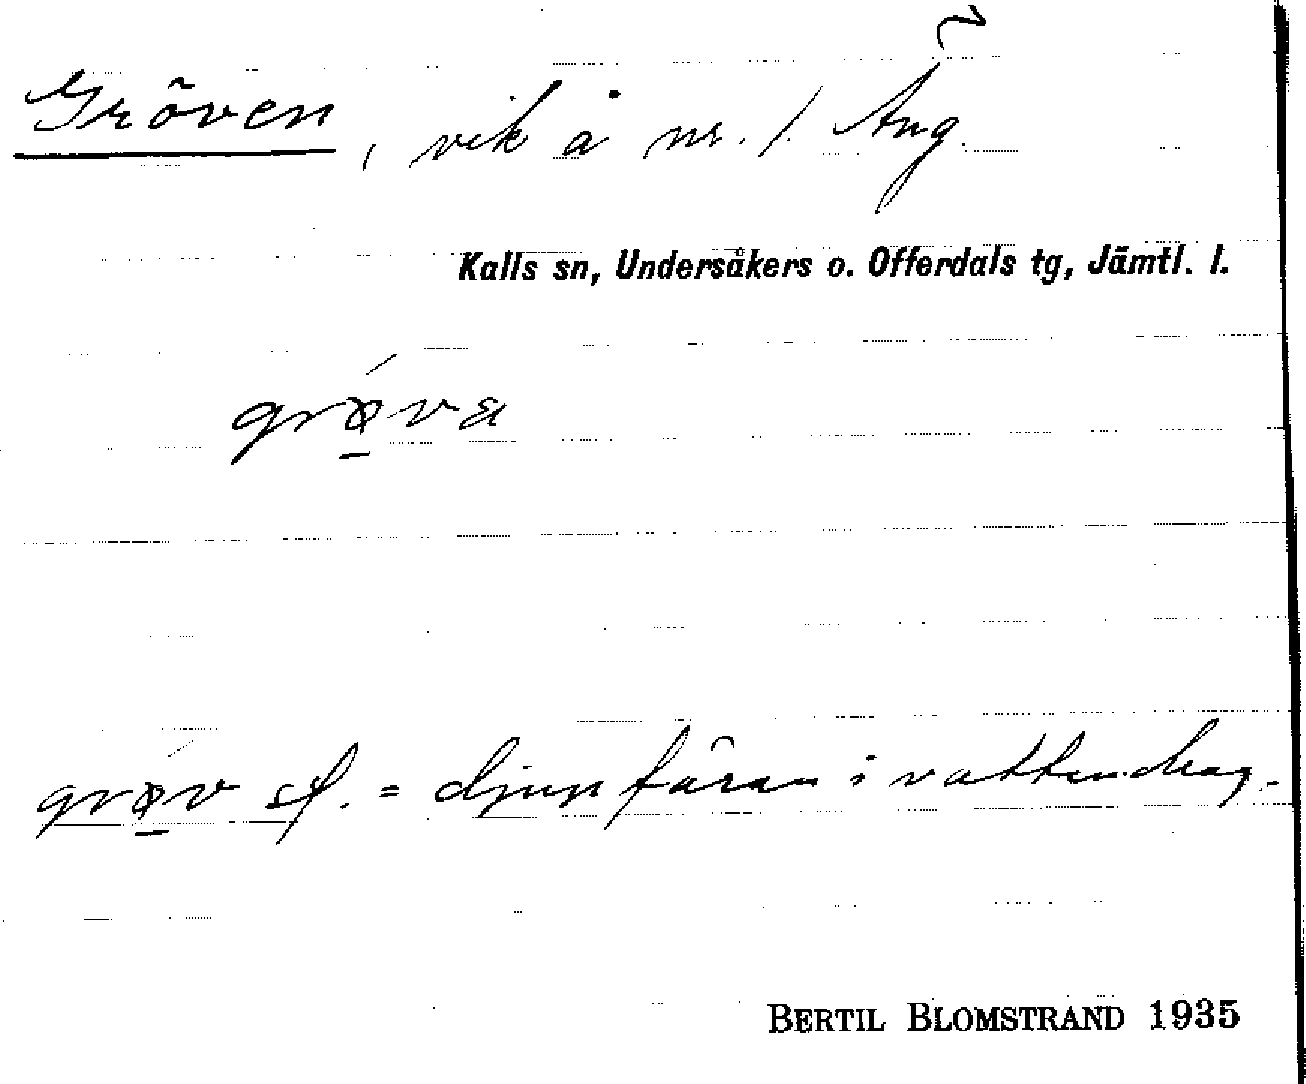 Gröven, vik å nr. 1. Äng.
Kalls sn, Undersåkers o. Offerdals tg, Jämtl. l.
grǿ̱va
grǿ̱v sf. = djup fåran i vattendrag.
BERTIL BLOMSTRAND 1935